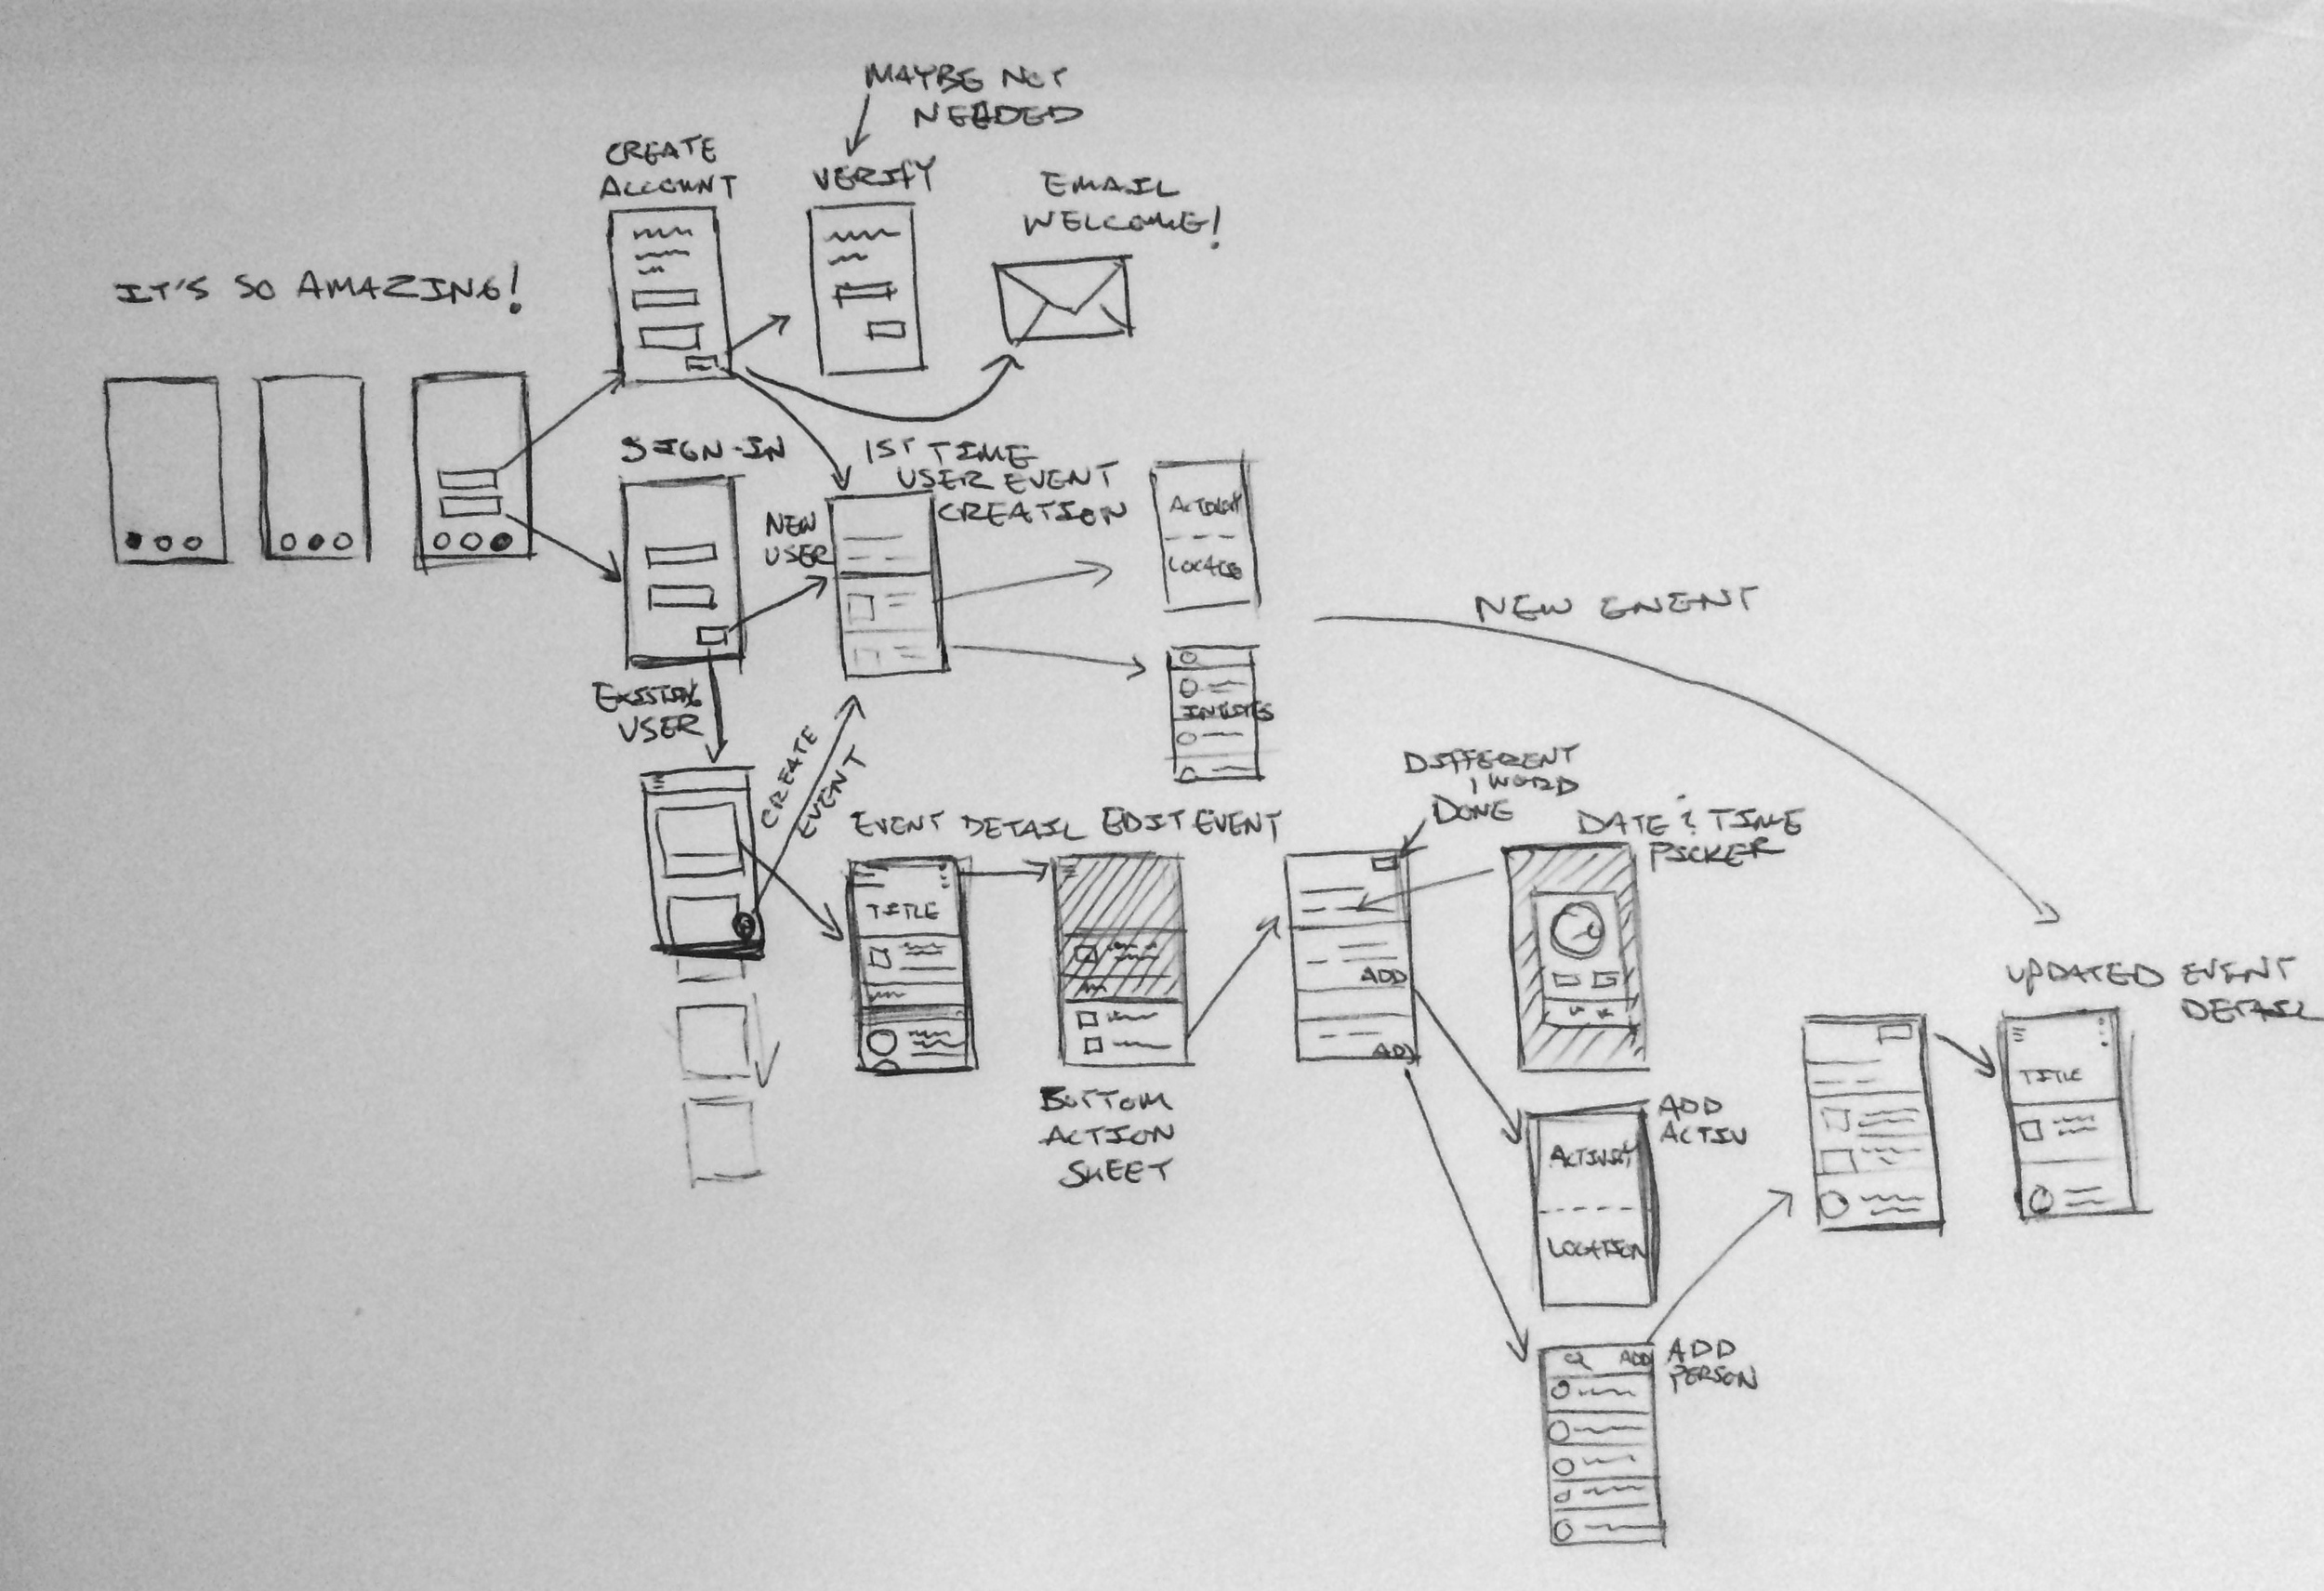 MAYBE NOT
NEEDED
CREATE
ACCOUNT
VERIFY
EMAIL
WELCOME!
IT'S SO AMAZING!
SIGN-IN
1ST TIME
USER EVENT
CREATION
NEW
USER
ACTIVITY
LOCATION
NEW EVENT
INVITES
EXISTING
USER
CREATE
EVENT
DIFFERENT
1 WORD
DONE
EVENT DETAIL
EDIT EVENT
DATE & TIME
PICKER
TITLE
ADD
ADD
UPDATED EVENT
DETAIL
TITLE
BOTTOM
ACTION
SHEET
ADD
ACTIV
ACTIVITY
LOCATION
ADD
ADD
PERSON